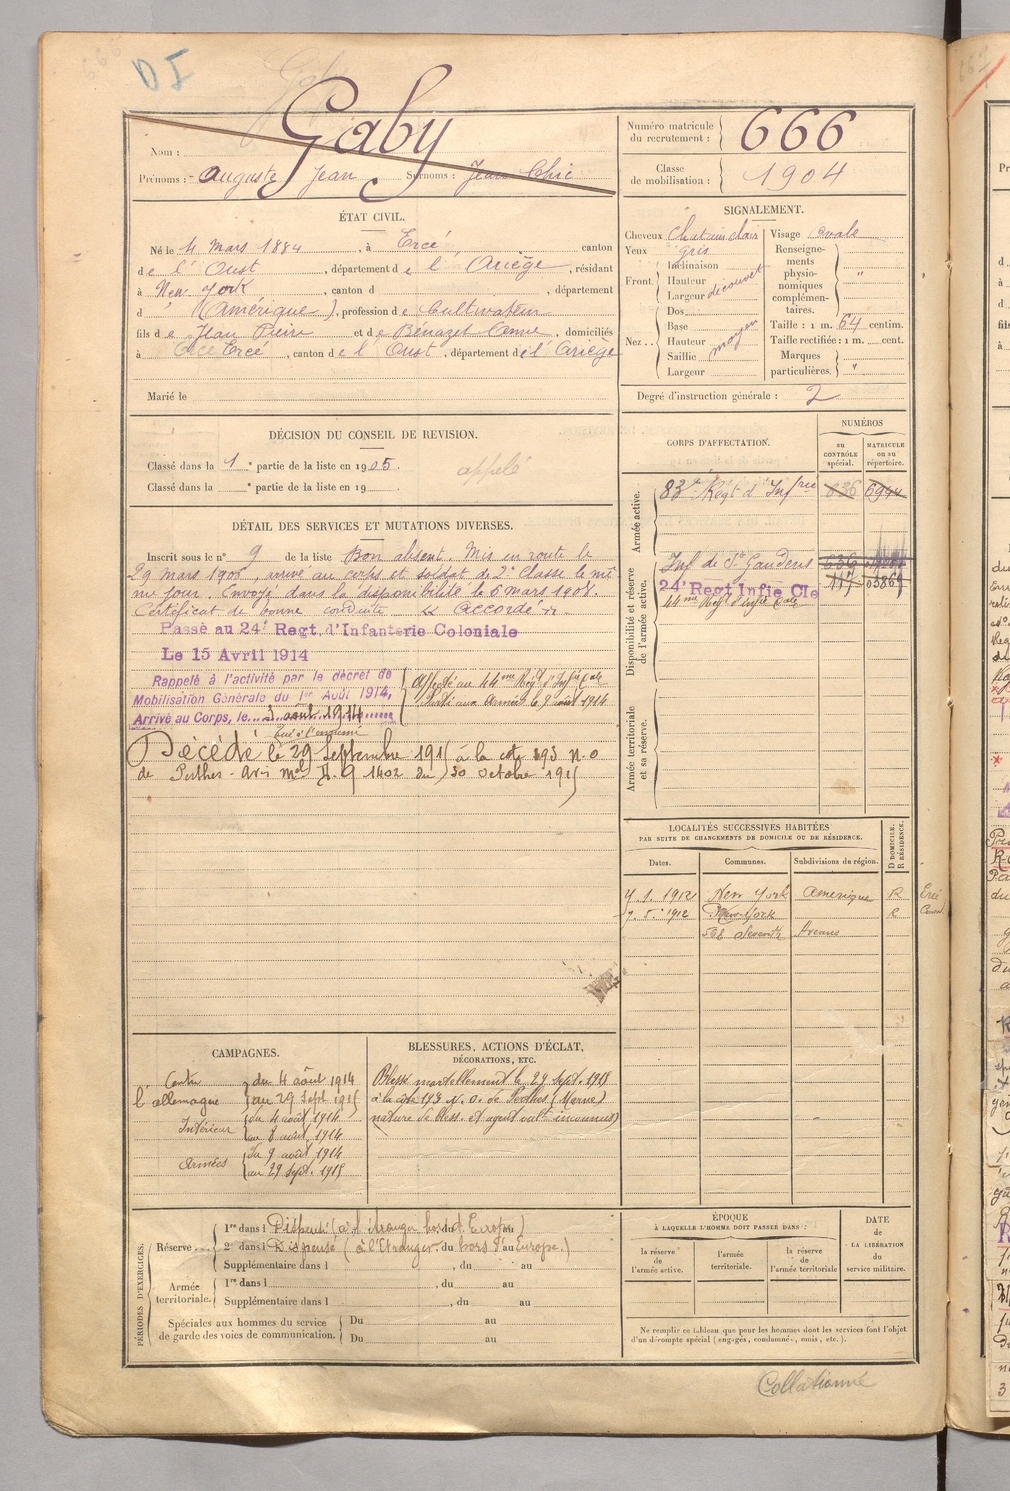 D I
Nom : Gaby
Prénoms : Auguste Jean Surnoms : Jean Chic
Numéro matricule du recrutement : 666
Classe de mobilisation : 1904
ÉTAT CIVIL.
Né le 4 Mars 1884, à Ercé canton
de l'Oust, département de l'Ariège, résidant
à New York, canton d , département
d " (Amérique), profession de Cultivateur
fils de Jean Pierre et de Bénazet Anne, domiciliés
à Ercé, canton de l'Oust, département de l'Ariège
Marié le
SIGNALEMENT.
Cheveux Chatain clair Visage ovale
Yeux gris
Front. Inclinaison
Hauteur
Largeur découvert
Nez.. Dos
Base
Hauteur moyen
Saillie
Largeur
Renseignements physionomiques complémentaires. "
Taille : 1 m. 64 centim.
Taille rectifiée : 1 m. cent.
Marques particulières. "
Degré d'instruction générale : 2
DÉCISION DU CONSEIL DE REVISION.
Classé dans la 1e partie de la liste en 1905.
appelé
Classé dans la e partie de la liste en 19
DÉTAIL DES SERVICES ET MUTATIONS DIVERSES.
Inscrit sous le n° 9 de la liste Bon absent. Mis en route le
29 mars 1906, arrivé au corps et soldat de 2e Classe le
jour. Envoyé dans la disponibilité le 5 mars 1908.
Certificat de bonne conduite accordé
Passé au 24e Regt. d'Infanterie Coloniale
Le 15 Avril 1914
Rappelé à l'activité par le décret de
Mobilisation Générale du 1er Août 1914,
Arrivé au Corps, le 3 août 1914
Affecté au 44me Régt d'Infie Cale
Parti aux Armées le 9 août 1914
tué à l'ennemi
Décédé le 29 Septembre 1915 à la cote 193 N.O
de Perthes - avis mel 9 1402 du 30 octobre 1915
CORPS D'AFFECTATION.
NUMÉROS
au CONTRÔLE spécial.
MATRICULE ou au répertoire.
Armée active.
83e Régt d'Infrie 636 6944
Disponibilité et réserve de l'armée active.
Inf de St Gaudens 636
24e Regt Infie Cle 117 03869
44me Régt d'Infie Cale
Armée territoriale et sa réserve.
LOCALITÉS SUCCESSIVES HABITÉES
PAR SUITE DE CHANGEMENTS DE DOMICILE OU DE RÉSIDENCE.
Dates. Communes. Subdivisions de région. D DOMICILE. R RÉSIDENCE.
1. 1912 New York Amérique R
7. 5. 1912 New-York R
568 Seventh Avenue
CAMPAGNES.
Contre l'allemagne du 4 août 1914
au 29 Sept 1915
Intérieur du 4 août 1914
au 8 août 1914
Armées du 9 août 1914
au 29 Sept. 1915
BLESSURES, ACTIONS D'ÉCLAT,
DÉCORATIONS, ETC.
Blessé mortellement le 29 Sept. 1915
à la côte 193 N.O. de Perthes (Marne)
nature de bless. et agent vult inconnus
PÉRIODES D'EXERCICES.
Réserve
1re dans l Dispensé (à l'étranger hors d'Europe) du au
2e dans l Dispensé (à l'Etranger hors d'Europe.) du au
Supplémentaire dans l , du au
Armée territoriale.
1re dans l , du au
Supplémentaire dans l , du au
Spéciales aux hommes du service de garde des voies de communication.
Du au
Du au
ÉPOQUE
À LAQUELLE L'HOMME DOIT PASSER DANS :
la réserve de l'armée active.
l'armée territoriale.
la réserve de l'armée territoriale
DATE de LA LIBÉRATION du service militaire.
Ne remplir ce tableau que pour les hommes dont les services font l'objet
d'un décompte spécial (engagés, condamnés, omis, etc.).
Collationné